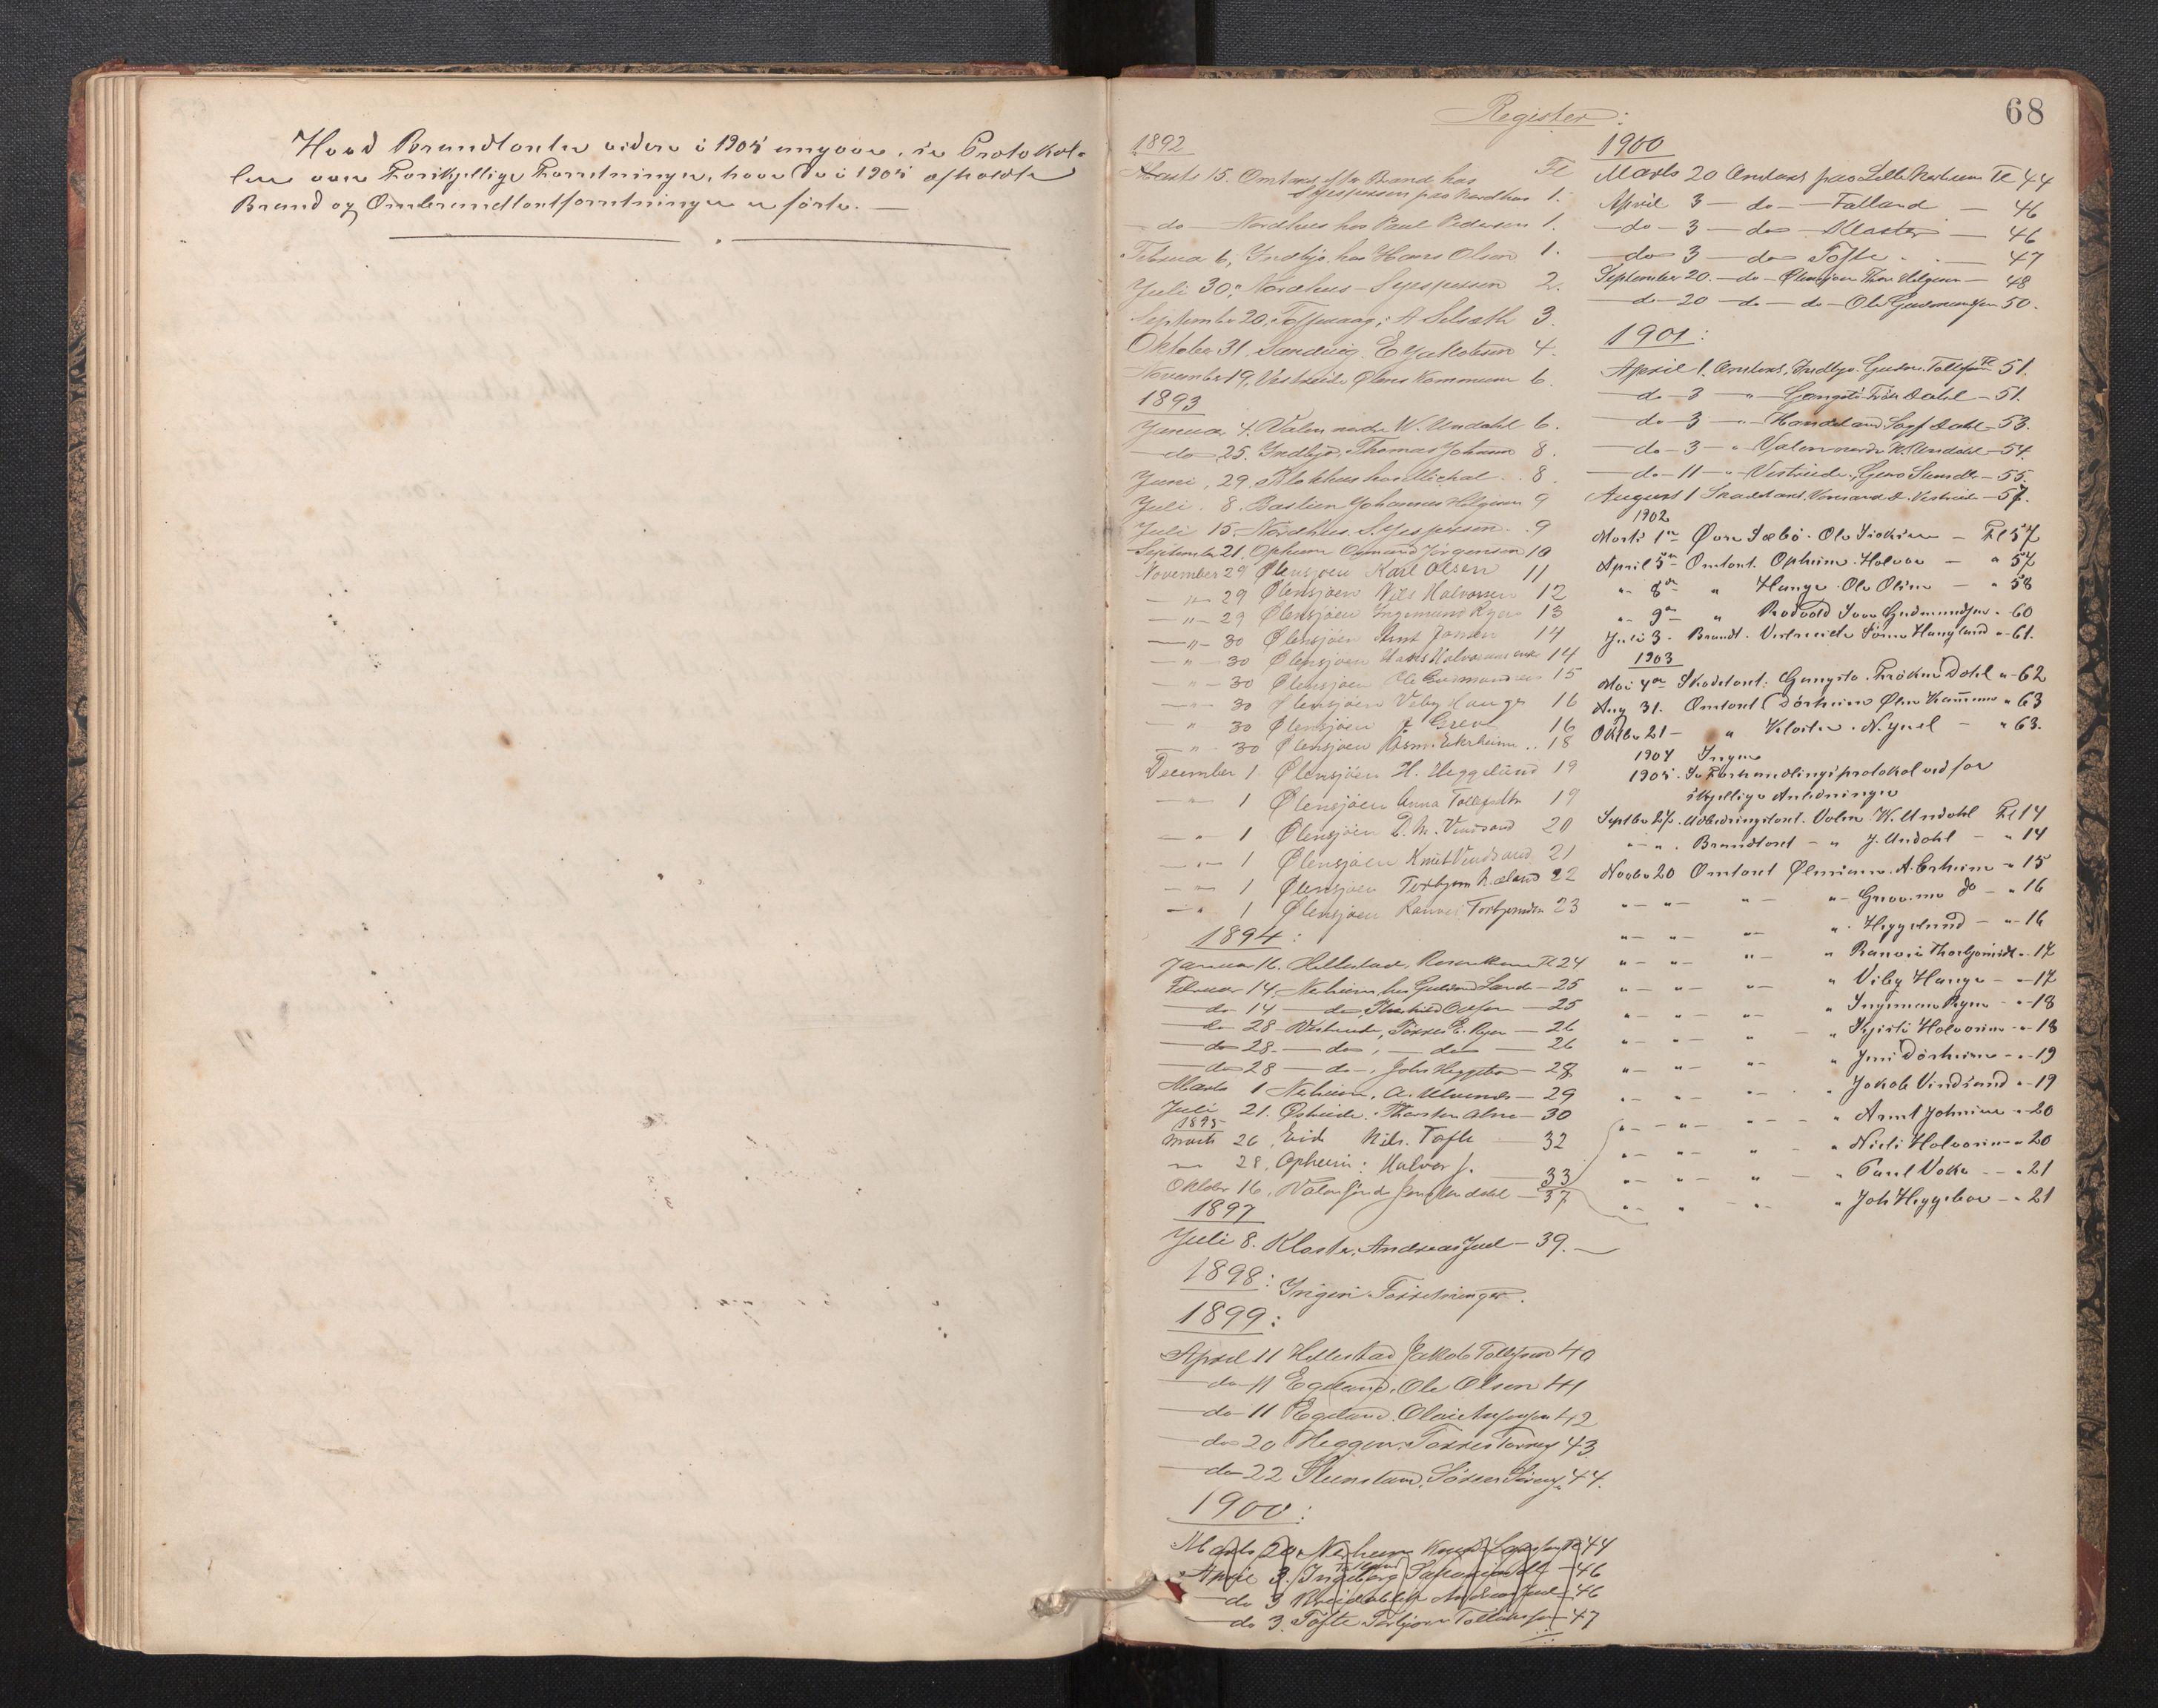 Hvad Brandtaxter videre i 1905 angaar, se Protokol-
len over Forskjellige Forretninger, hvor de i 1905 afholdte
Brand og Ombrandtaxtforretninger er førte. —
68
Register:
1892
Marts 15. Omtaxt efter Brand hos Fl
S Jespersen paa Nordhus 1.
— do — Nordhus hos Paul Pedersen 1.
Februar 6, Indbjo, hos Hans Olsen 1.
Juli 30, Nordhus — Jespersen 2.
September 20, Toftevaag, A Selseth 3.
Oktober 31. Sandvig. E Jakobsen 4.
November 19, Vestreide Ølens Kommune 6.
1893
Januar 4. Valen nedre W. Undahl 6.
— do 25. Indbjo, Thomas Johnsen 8.
Juni, 29, Klokhus hos Michal 8.
Juli. 8. Bastien Johannes Helgesen 9
Juli 15. Nordhus. S. Jespersen. 9
September 21. Opheim Osmund Jörgensen 10
November 29 Ølensjøen Karl Olsen 11
— " — 29 Ølensjøen Nils Halvorsen 12
— " — 29 Ølensjøen Ingemund Ryen 13
— " — 30 Ølensjøen Arnt Jonsen 14
— " — 30 Ølensjøen Hans Halvorsens enke 14
— " — 30 Ølensjøen Ole Gudmundsen 15
— " — 30 Ølensjøen Viby Hauge 16
" 30 Ølensjøen Greve 16
— " — 30 Ølensjøen Åsm. Ekrheim 18
December 1. Ølensjöen H. Heggelund 19
— " — 1 Ølensjöen Anna Tollefsdtr 19
— " 1 Ølensjöen D. M. Vindsand 20
— " — 1 Ølensjöen Knut Vindsand 21
— " — 1 Ølensjøen Torbjørn Mæland 22
— " 1 Ølensjøen Ranvei Torbjørnsdtr 23
1894:
Januar 16. Hellestad, Fl 24
Februar 14, Neheim, hos Gudmund Lande — 25
— do 14 — do, — 25
— do 28 — Vestreide, Torres E. Ryen — 26
— do 28. — do, — do — 26
— do 28 — do —, John Heggebø — 28
Marts 1 Neheim, A. Ulvenes — 29
Juli 21. Østreide. Thorsten Alne — 30
1895
Marts 26, Eide Nils. Tofte 32
— 28, Opheim: Halvor J. 33
Oktober 16, Valen søndre Jens Undahl — 37
1897
Juli 8. Kloster, Andreas Juel — 39. —
1898: Ingen Forretninger.
1899:
April 11 Hellestad Jakob Tollefsen 40
— do 11 Egeland, Ole Olsen 41
— do 11 Egeland. 42
— do 20 Heggen. Torres 43
— do 22 44.
1900:
Marts 20. Nerheim Knud Fl 44
April 3. Ingeborg — 46
— do 3 Andreas Juel — 46
— do 3. Tofte Torbjørn Tollefsen — 47
1900
Marts 20 Omtaxt paa Lille Nerheim Fl 44
April 3 — do — Falland — 46
— do — 3 — do — Kloster — 46
— do 3 — do Tofte — 47
September 20. — do — Ølensjøen Thor Helgesen — 48
— do — 20 — do — do — Ole Gudmundsen 50.
1901:
April 1. Omtaxt, Indbjo. Gudm. Tollefsen Fl 51.
— do — 3 — " — Gangstø Frøken Dahl — 51.
— do — 3 — " — Handeland Dahl — 53.
— do — 3 — " Valen nedre W. Undahl — 54.
— do — 11 — " — Vestreide, — 55.
August 1 Skadetaxt. Vestreide — 57.
1902
Marts 1ste Øvre Sæbö. Ole — Fl 57
April 5te Omtaxt. Opheim. Halvor — " 57
" 8de " Hauge. Ole Olsen — " 58
" 9de " Rodvold Iver Gudmundsen " 60
Juli 3. Brandt. Vestreide Sören Haugland " 61.
1903
Mai 4de Skadetaxt: Gangstø. Frøken Dahl " 62
Aug 31. Omtaxt Dørheim Ølen Kommune " 63
Oktbr 21 — " Kloster. N. Juel — " 63.
1904 Ingen
1905. Se Forhandlingsprotokol ved for
skjellige Anledninger
Septbr 27. Udbedringstaxt. Valen W. Undahl Fl 14
" " . Brandtaxt — " J. Undahl — " 14
Novbr 20 Omtaxt Ølensøen. A. Ekrheim — " 15
" — " — " — " — Greve do — " 16
" — " — " — " . Heggelund — " 16
" — " — " — " Ranvei Thorbjørnsdt " 17
" — " — " — " Viby Hauge — " 17
" — " — " — " Ingeman Ryen — " 18
" — " — " — " Kjersti Halvorsen — " 18
" — " — " — " Jens Dørheim — " 19
" — " — " — " Jakob Vindsand " 19
" — " — " — " Arnt Johnsen — " 20
" — " — " — " Niels Halvorsen " 20
" — " — " — " Paul Voke — " 21
" — " — " — " Joh Heggebøe — " 21